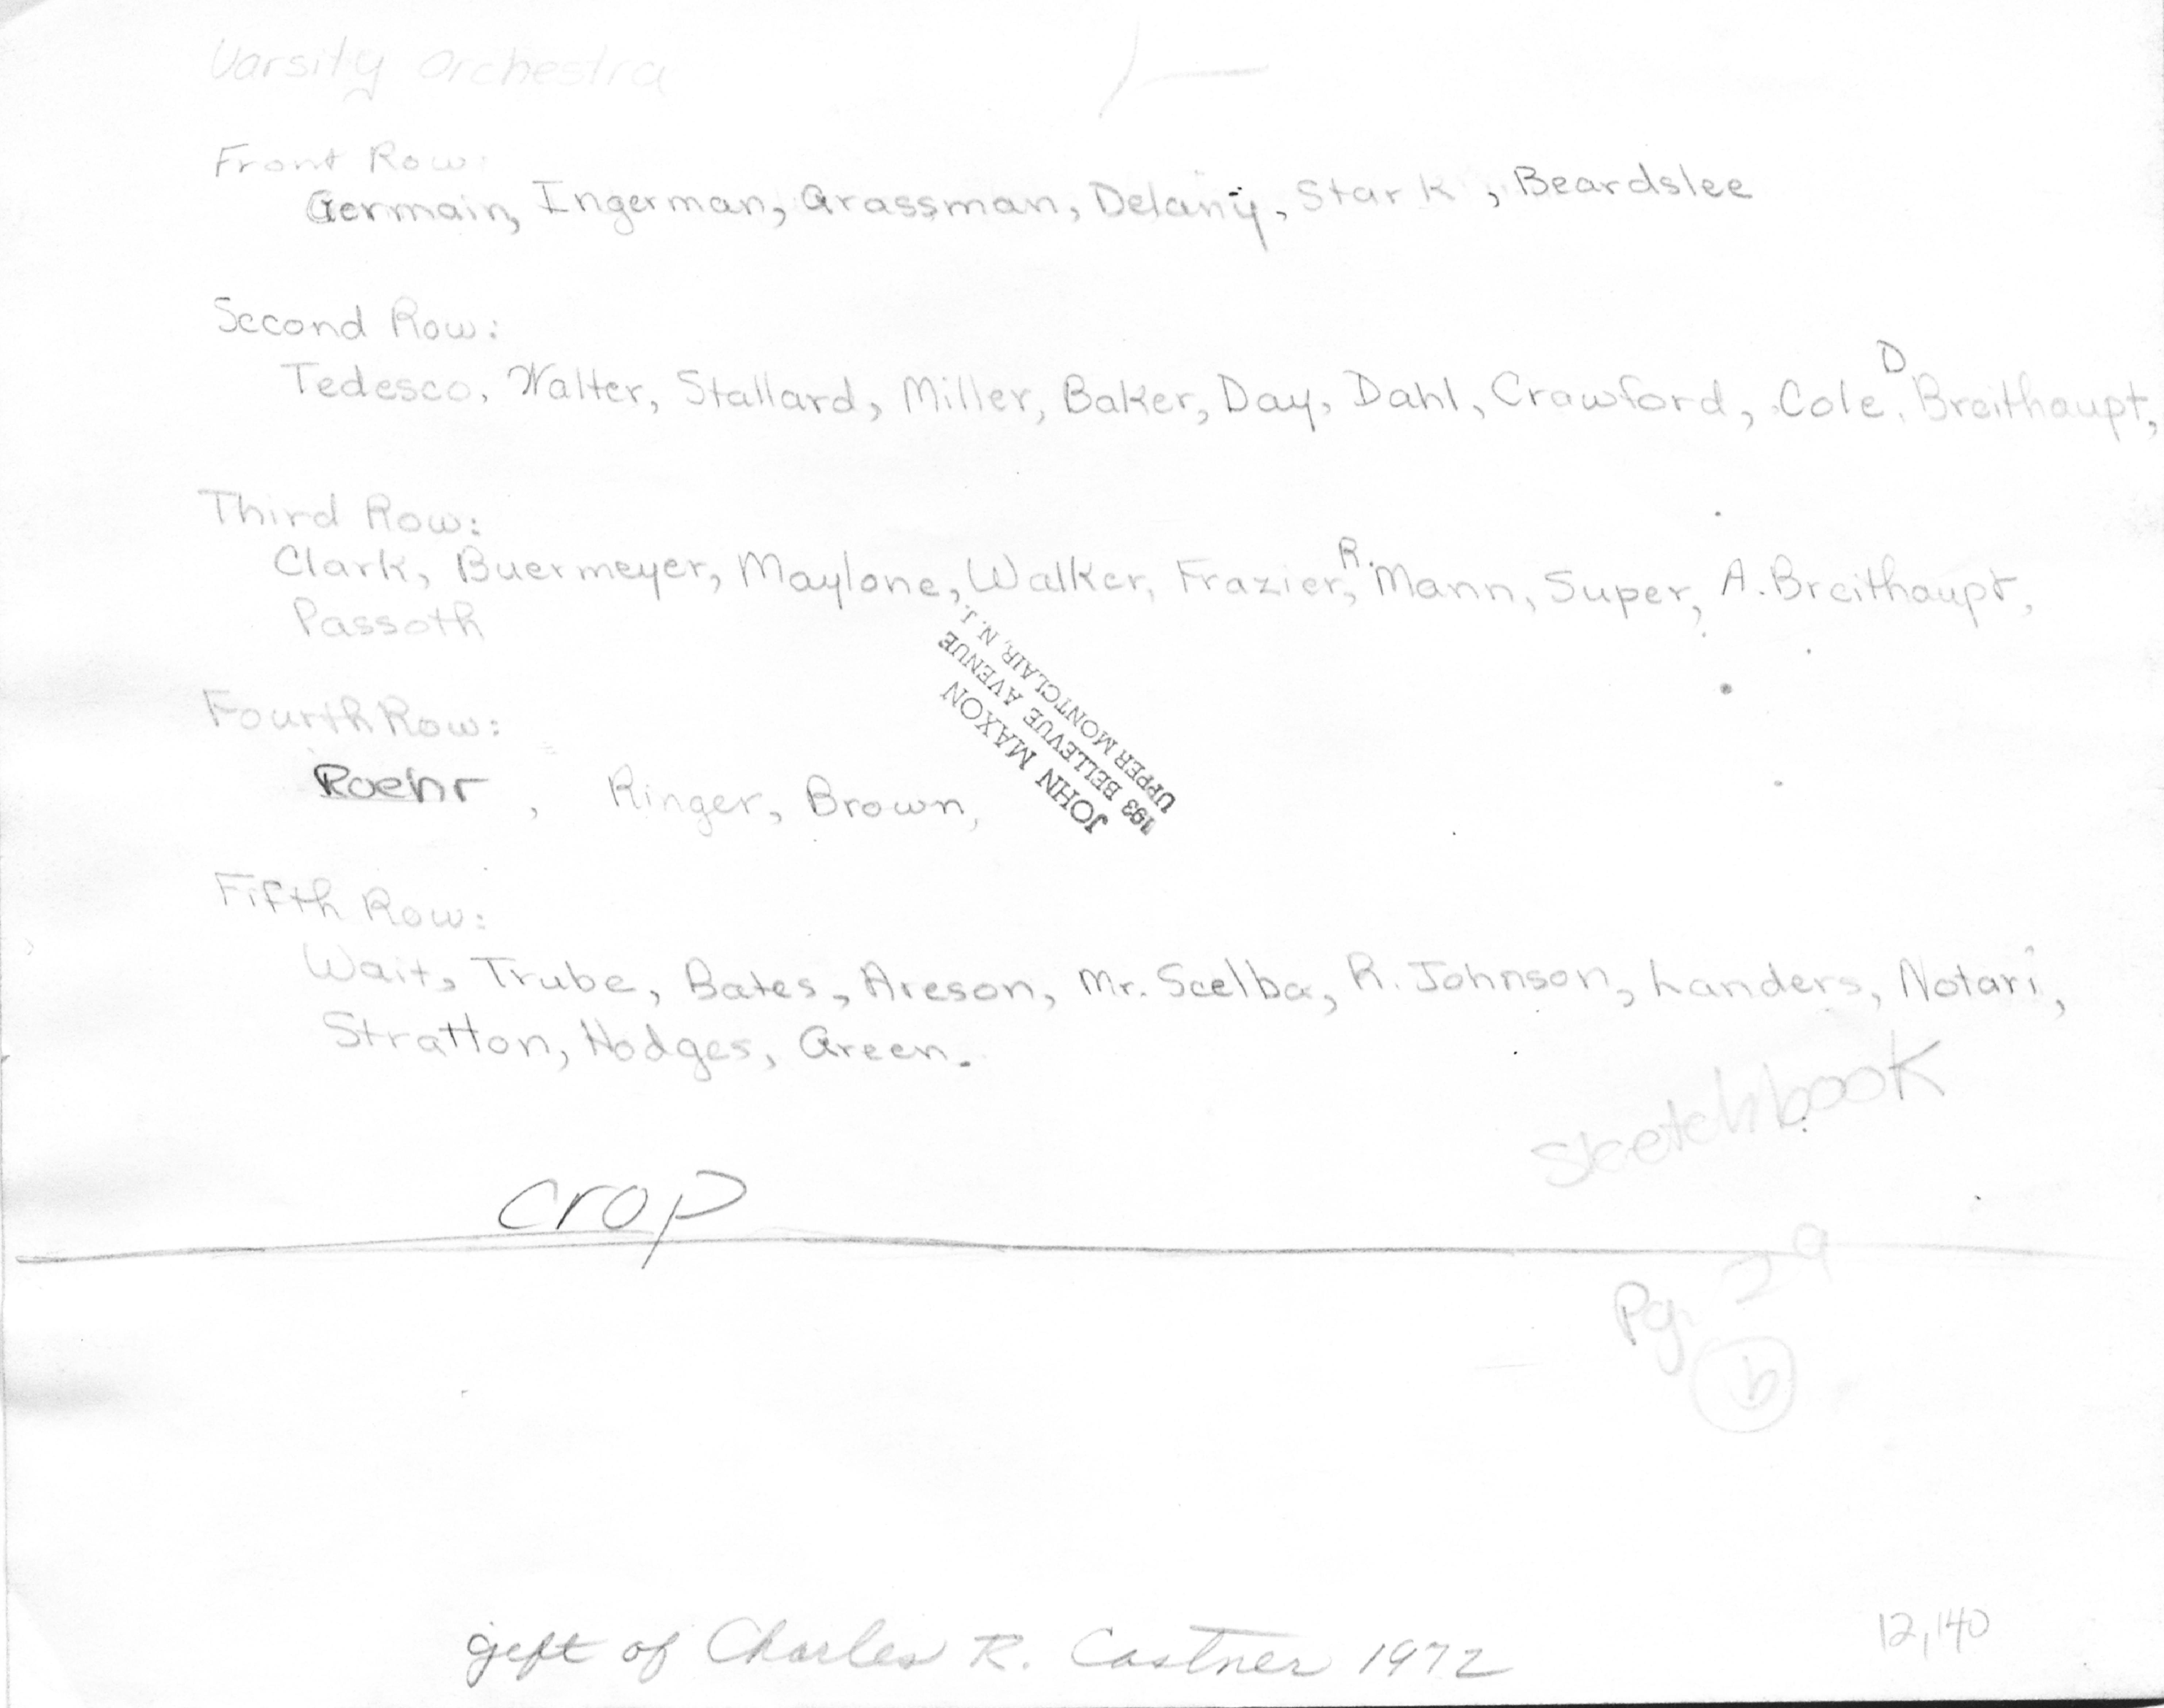 Varsity Orchestra
Front Row:
Germain, Ingerman, Grassman, Delany, Stark, Beardslee
Second Row:
Tedesco, Walter, Stallard, Miller, Baker, Day, Dahl, Crawford, Cole, D Breithaupt,
Third Row:
Clark, Buermeyer, Maylone, Walker, Frazier, R. Mann, Super, A. Breithaupt,
Passoth
JOHN MAXON
193 BELLEVUE AVENUE
UPPER MONTCLAIR, N. J.
Fourth Row:
Roehr, Ringer, Brown,
Fifth Row:
Wait, Trube, Bates, Areson, Mr. Scelba, R. Johnson, Landers, Notari,
Stratton, Hodges, Green.
sketchbook
crop
Pg. 29
b
gift of Charles R. Castner 1972
12,140